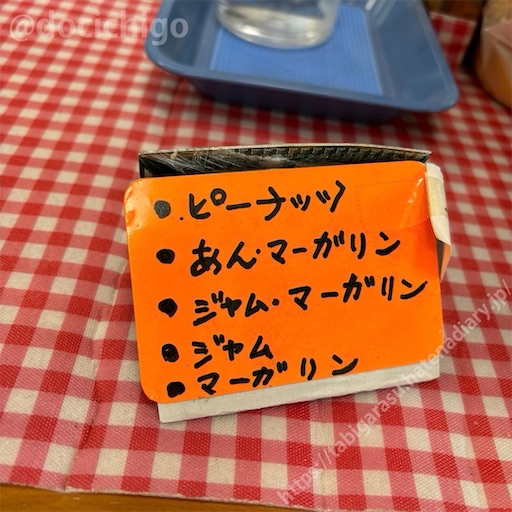 @docichigo
• ピーナッツ
• あん・マーガリン
• ジャム・マーガリン
• ジャム
• マーガリン
https://tabigarasu.hatenadiary.jp/